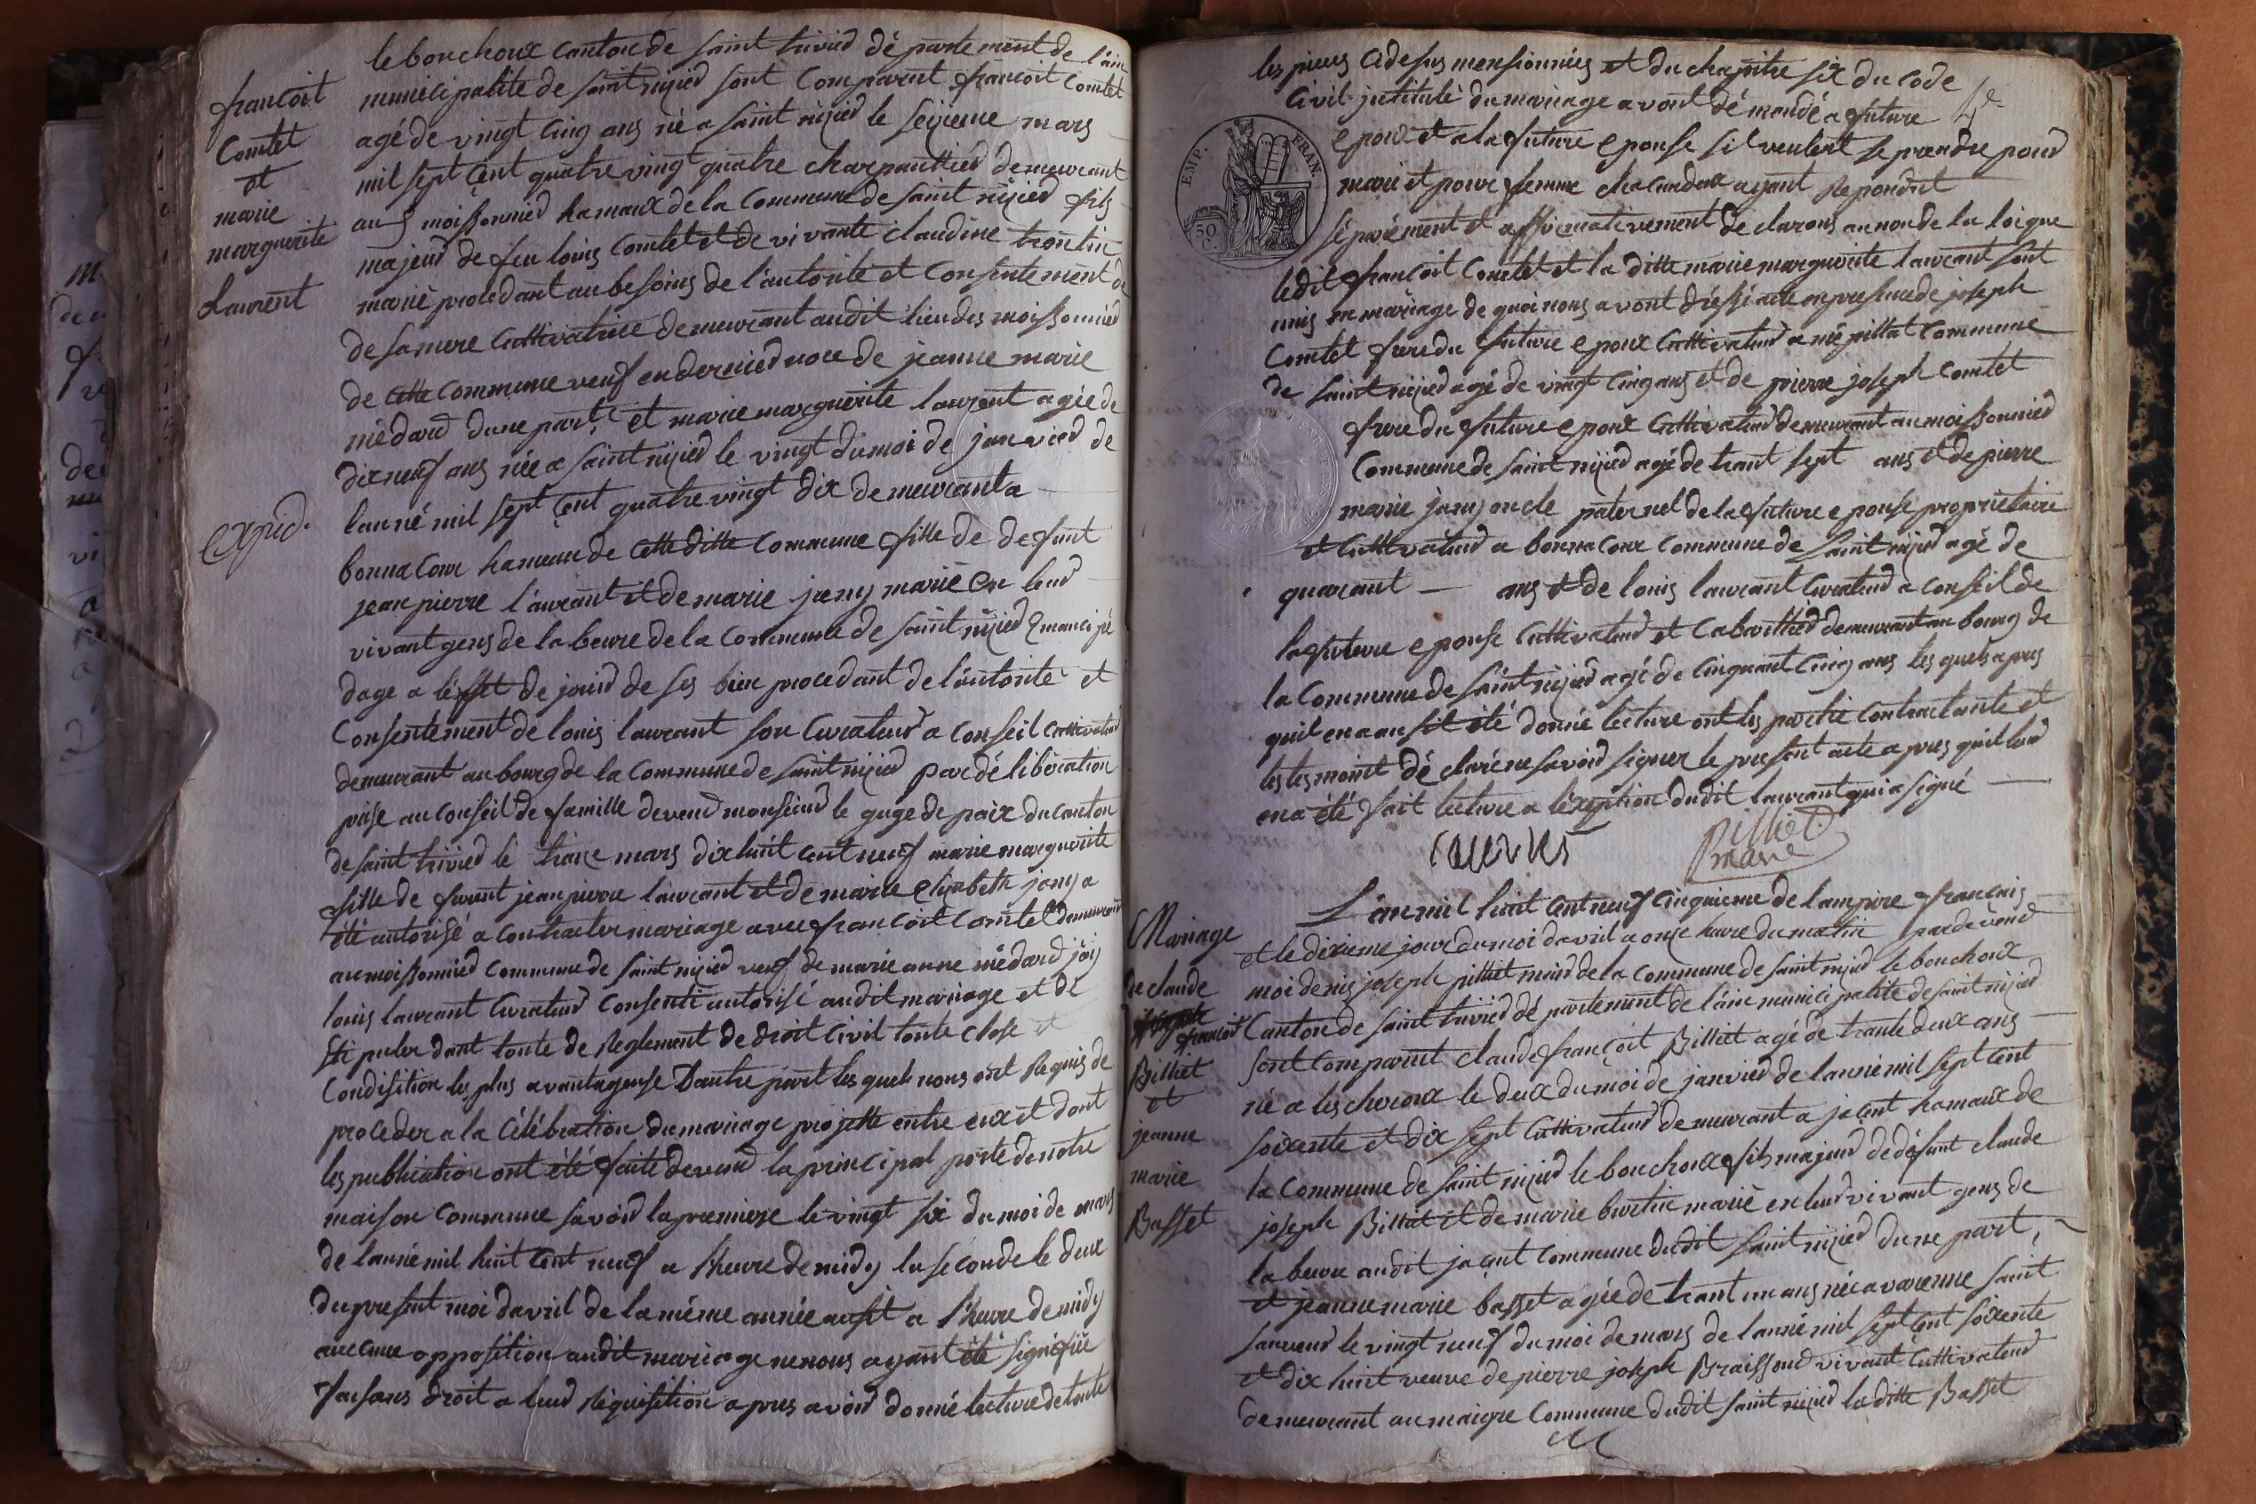 le bouchoux canton de saint trivier dé partement de l'ain
francoit
Comtet
et
marie
marguerite
Laurent
expié.
municipalite de saint nizier sont Comparent francoit Comtet
agé de vingt Cinq ans né a saint nizier le seizieme mars
mil sept Cent quatre vingt quatre charpanttier demeurant
au moissonnier hamaux de la Commune de saint nizier fils
majeur de feu louis Comtet et de vivante claudine trontin
marié procedant au besoins de l'autorité et Consentement de
de sa mere Cultivatrice demeurant audit lieu des moissonnier
de cette commune veuf en dernier noce de jeanne marie
médard dune part et marie marguerite laurent agée de
dix neuf ans née a saint nizier le vingt du moi de janvier de
lanné mil sept Cent quatre vingt dix demeurant a
bonna Cour hameau de Cette ditte Commune fille de defunt
jean pierre laurant et de marie jany marié en leur
vivant gens de la beure de la Commune de saint nizier Emancipé
dage a léffet de jouir de ses bien procedant de l'autorité et
Consentement de louis laurant son Curateur a Conseil Cultivateur
demeurant au bourg de la Commune de saint nizier par délibération
prise au Conseil de famille devend monsieur le guge de paix du Canton
de saint trivier le traize mars dix huit cent neuf marie marguerite
fille de feuent jean pierre laurant et de marie elizabeth jany a
été autorisé a contracter mariage avec francoit Comtet demeurant
au moissonnier Commune de saint nizier veuf de marie anne médard
louis laurant Curateur Consenti autorisé audit mariage et de
sti puler dant toute de Reglement de droit Civil toute close et
Condisition les plus avantageuse Dautre part les quels nous ont Requis de
proceder a la Célébration du mariage projetté entre eux et dont
les publication ont été faite devend la principal porte de notre
maison Commune savoir la premiere le vingt six du moi de mars
de lanné mil huit Cent neuf a l'heure de midy la seconde le deux
du present moi davril de la même année ausit a l'heure de midy
aucune opposition audit mariage ne nous ayant été signifiée
faisans droit a leur réquisition apres avoir donné lecture de toute
les pieces Cidesus mensionnées et du chapitre six du Code
Civil intitulé du mariage avont démandé a future
EMP. FRAN.
50 C.
epoux et a la future epouse sil veulent se prendre pour
marie et pour femme chacundeux ayant Repondit
séparément et affirmativement declarons au non de la loi que
ledit francoit Comtet et la ditte marie marguerite laurant sont
unis en mariage de quoi nous avont dressé acte en presence de joseph
Comtet frere du future epoux Cultivateur a népillat Commune
de saint nizier agé de vingt Cinq ans et de pierre joseph Comtet
frere du future epoux Cultivateur demeurant au moissonnier
Commune de saint nizier agé de trant sept ans et de pierre
marie jany oncle paternel de la future epouse proprietaire
et Cultivateur a bonna Cour Commune de saint nizier agé de
quarant — ans et de louis laurant Curateur a Conseil de
la future epouse Cultivateur et Cabarittier demeurant au bourg de
la Commune de saint nizier agé de Cinquant Cinq ans les quels apres
quil en a ausit été donné lecture ont les partie Contractante et
les tesmoint dé claré ne savoir signer le present acte apres quil leur
en a été fait lecture a léxeption dudit laurant qui a signé
Pilliet
marie
L'an mil huit Cent neuf Cinquieme de lampire français
Mariage
de claude
françoit
Billiet
et
jeanne
marie
Basset
et le dixieme jour du moi davril a onze heure du matin pardevend
moi denis joseph pilliet maire de la Commune de saint nizier le bouchoux
Canton de saint trivier dé partement de l'ain municipalite de saint nizier
sont Comparent claude françoit Billiet agé de trante deux ans
né a leschoroux le deux du moi de janvier de lanné mil sept Cent
soixente et dix sept Cultivateur demeurant a jaçent hamaux de
la Commune de saint nizier le bouchoux fils majeur de défunt claude
joseph Billiet et de marie burtin marié en leur vivant gens de
la beure audit jaçent Commune dudit saint nizier dune part,
et jeanne marie basset agée de trant un ans née a varenne saint
sauveur le vingt neuf du moi de mars de lanné mil sept Cent soixente
et dix huit veuve de pierre joseph Braissoud vivant Cultivateur
demeurant au maigre Commune dudit saint nizier la ditte Basset